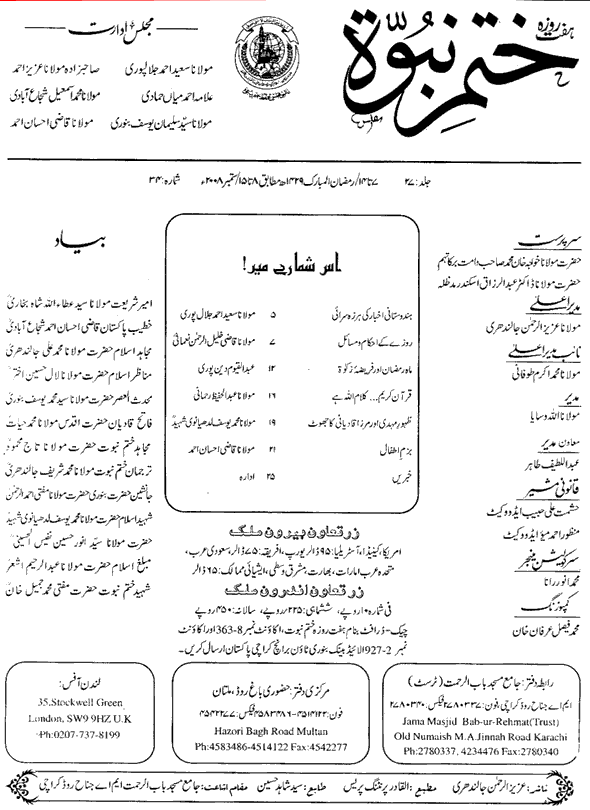 ہفت روزہ
ختم نبوۃ
مجلس ادارت
مولانا سعید احمد جلالپوری صاحبزادہ مولانا عزیز احمد
علامہ احمد میاں حمادی مولانا محمد اسمعیل شجاع آبادی
مولانا سید سلیمان یوسف بنوری مولانا قاضی احسان احمد
جلد: ۲۷ ۷ تا ۱۴/رمضان المبارک ۱۴۲۹ھ مطابق ۸ تا ۱۵/ستمبر ۲۰۰۸ء شمارہ: ۳۴
سرپرست
حضرت مولانا خواجہ خان محمد صاحب دامت برکاتہم
حضرت مولانا ڈاکٹر عبدالرزاق اسکندر مدظلہ
مدیر اعلیٰ
مولانا عزیز الرحمٰن جالندھری
نائب مدیر اعلیٰ
مولانا محمد اکرم طوفانی
مدیر
مولانا اللہ وسایا
معاون مدیر
عبداللطیف طاہر
قانونی مشیر
حشمت علی حبیب ایڈووکیٹ
منظور احمد میؤ ایڈووکیٹ
سرکولیشن منیجر
محمد انور رانا
کمپوزنگ
محمد فیصل عرفان خان
اس شمارے میں!
ہندوستانی اخبار کی ہرزہ سرائی ۵ مولانا سعید احمد جلال پوری
روزے کے احکام و مسائل ۷ مولانا قاضی خلیل الرحمٰن نعمانی
ماہ رمضان اور فریضۂ زکوٰۃ ۱۲ عبدالقیوم دین پوری
قرآن کریم... کلام اللہ ہے ۱۶ مولانا عبدالحفیظ رحمانی
ظہور مہدی اور مرزا قادیانی کا جھوٹ ۱۹ مولانا محمد یوسف لدھیانوی شہید
بزم اطفال ۲۱ مولانا قاضی احسان احمد
خبریں ۲۵ ادارہ
زر تعاون بیرون ملک
امریکا، کینیڈا، آسٹریلیا: ۹۵ ڈالر یورپ، افریقہ: ۷۵ ڈالر سعودی عرب،
متحدہ عرب امارات، بھارت، مشرق وسطیٰ، ایشیائی ممالک: ۶۵ ڈالر
زر تعاون اندرون ملک
فی شمارہ ۱۰ روپے، ششماہی: ۲۲۵ روپے، سالانہ: ۴۵۰ روپے
چیک-ڈرافٹ بنام ہفت روزہ ختم نبوت، اکاؤنٹ نمبر 8-363 اور اکاؤنٹ
نمبر 2-927 الائیڈ بینک بنوری ٹاؤن برانچ کراچی پاکستان ارسال کریں۔
بیاد
امیر شریعت مولانا سید عطاء اللہ شاہ بخاری
خطیب پاکستان قاضی احسان احمد شجاع آبادی
مجاہد اسلام حضرت مولانا محمد علی جالندھری
مناظر اسلام حضرت مولانا لال حسین اختر
محدث العصر حضرت مولانا سید محمد یوسف بنوری
فاتح قادیان حضرت اقدس مولانا محمد حیات
مجاہد ختم نبوت حضرت مولانا تاج محمود
ترجمان ختم نبوت مولانا محمد شریف جالندھری
جانشین حضرت بنوری حضرت مولانا مفتی احمد الرحمٰن
شہید اسلام حضرت مولانا محمد یوسف لدھیانوی شہید
حضرت مولانا سید انور حسین نفیس الحسینی
مبلغ اسلام حضرت مولانا عبدالرحیم اشعر
شہید ختم نبوت حضرت مفتی محمد جمیل خان
رابطہ دفتر: جامع مسجد باب الرحمت (ٹرسٹ)
ایم اے جناح روڈ کراچی، فون: ۲۷۸۰۳۳۷ فیکس: ۲۷۸۰۳۴۰
Jama Masjid Bab-ur-Rehmat(Trust)
Old Numaish M.A.Jinnah Road Karachi
Ph:2780337, 4234476 Fax:2780340
مرکزی دفتر: حضوری باغ روڈ، ملتان
فون: ۴۵۱۴۱۲۲-۴۵۸۳۴۸۶ فیکس: ۴۵۴۲۲۷۷
Hazori Bagh Road Multan
Ph:4583486-4514122 Fax:4542277
لندن آفس:
35,Stockwell Green
London, SW9 9HZ U.K
Ph:0207-737-8199
ناشر: عزیز الرحمٰن جالندھری مطبع: القادر پرنٹنگ پریس طابع: سید شاہد حسین مقام اشاعت: جامع مسجد باب الرحمت ایم اے جناح روڈ کراچی